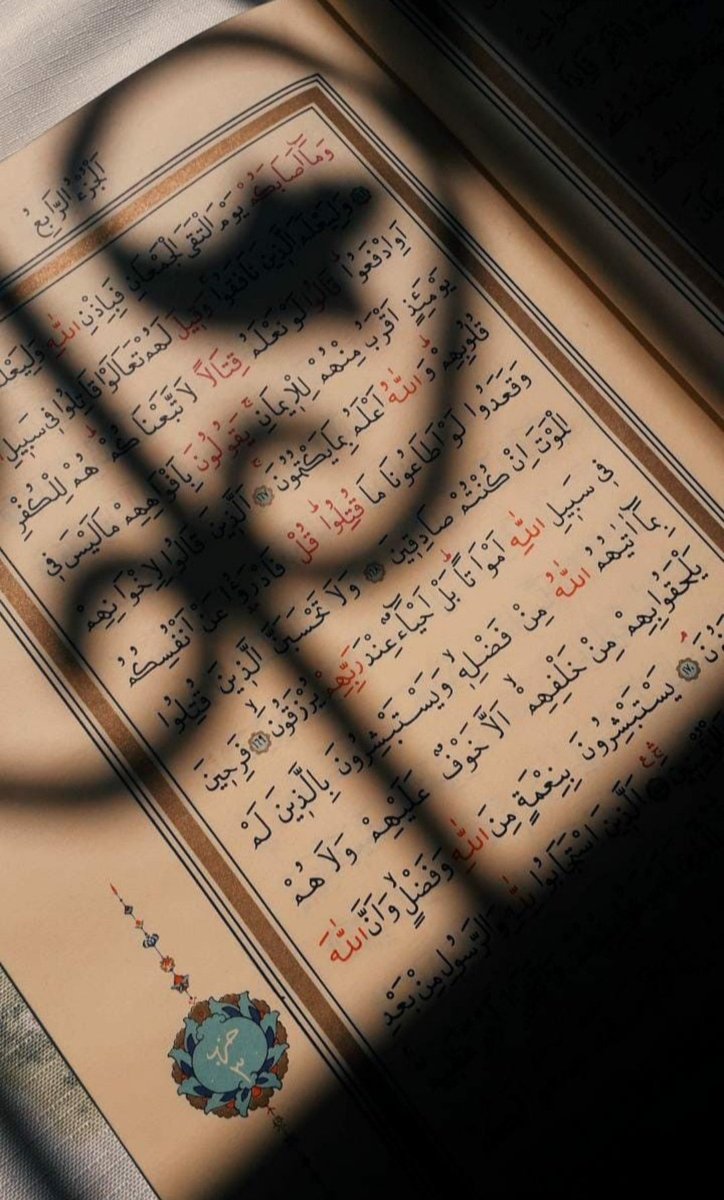 اَلْجُزْءُ الرَّابِعُ
وَمَٓا اَصَابَكُمْ يَوْمَ الْتَقَى الْجَمْعَانِ فَبِاِذْنِ اللّٰهِ وَلِيَعْلَمَ
وَلِيَعْلَمَ الَّذِينَ نَافَقُوا وَقِيلَ لَهُمْ تَعَالَوْا قَاتِلُوا فِي سَبِيلِ
اَوِ ادْفَعُوا قَالُوا لَوْ نَعْلَمُ قِتَالًا لَاتَّبَعْنَاكُمْ هُمْ لِلْكُفْرِ
يَوْمَئِذٍ اَقْرَبُ مِنْهُمْ لِلْاِيمَانِ يَقُولُونَ بِاَفْوَاهِهِمْ مَا لَيْسَ فِي
قُلُوبِهِمْ وَاللّٰهُ اَعْلَمُ بِمَا يَكْتُمُونَ ١٦٧ اَلَّذِينَ قَالُوا لِاِخْوَانِهِمْ
وَقَعَدُوا لَوْ اَطَاعُونَا مَا قُتِلُوا قُلْ فَادْرَؤُا عَنْ اَنْفُسِكُمُ
الْمَوْتَ اِنْ كُنْتُمْ صَادِقِينَ ١٦٨ وَلَا تَحْسَبَنَّ الَّذِينَ قُتِلُوا
فِي سَبِيلِ اللّٰهِ اَمْوَاتًا بَلْ اَحْيَٓاءٌ عِنْدَ رَبِّهِمْ يُرْزَقُونَ ١٦٩ فَرِحِينَ
بِمَٓا اٰتٰيهُمُ اللّٰهُ مِنْ فَضْلِهِ وَيَسْتَبْشِرُونَ بِالَّذِينَ لَمْ
يَلْحَقُوا بِهِمْ مِنْ خَلْفِهِمْ اَلَّا خَوْفٌ عَلَيْهِمْ وَلَا هُمْ
١٧٠ يَسْتَبْشِرُونَ بِنِعْمَةٍ مِنَ اللّٰهِ وَفَضْلٍ وَاَنَّ اللّٰهَ
اَلَّذِينَ اسْتَجَابُوا لِلّٰهِ وَالرَّسُولِ مِنْ بَعْدِ
حزب
٣